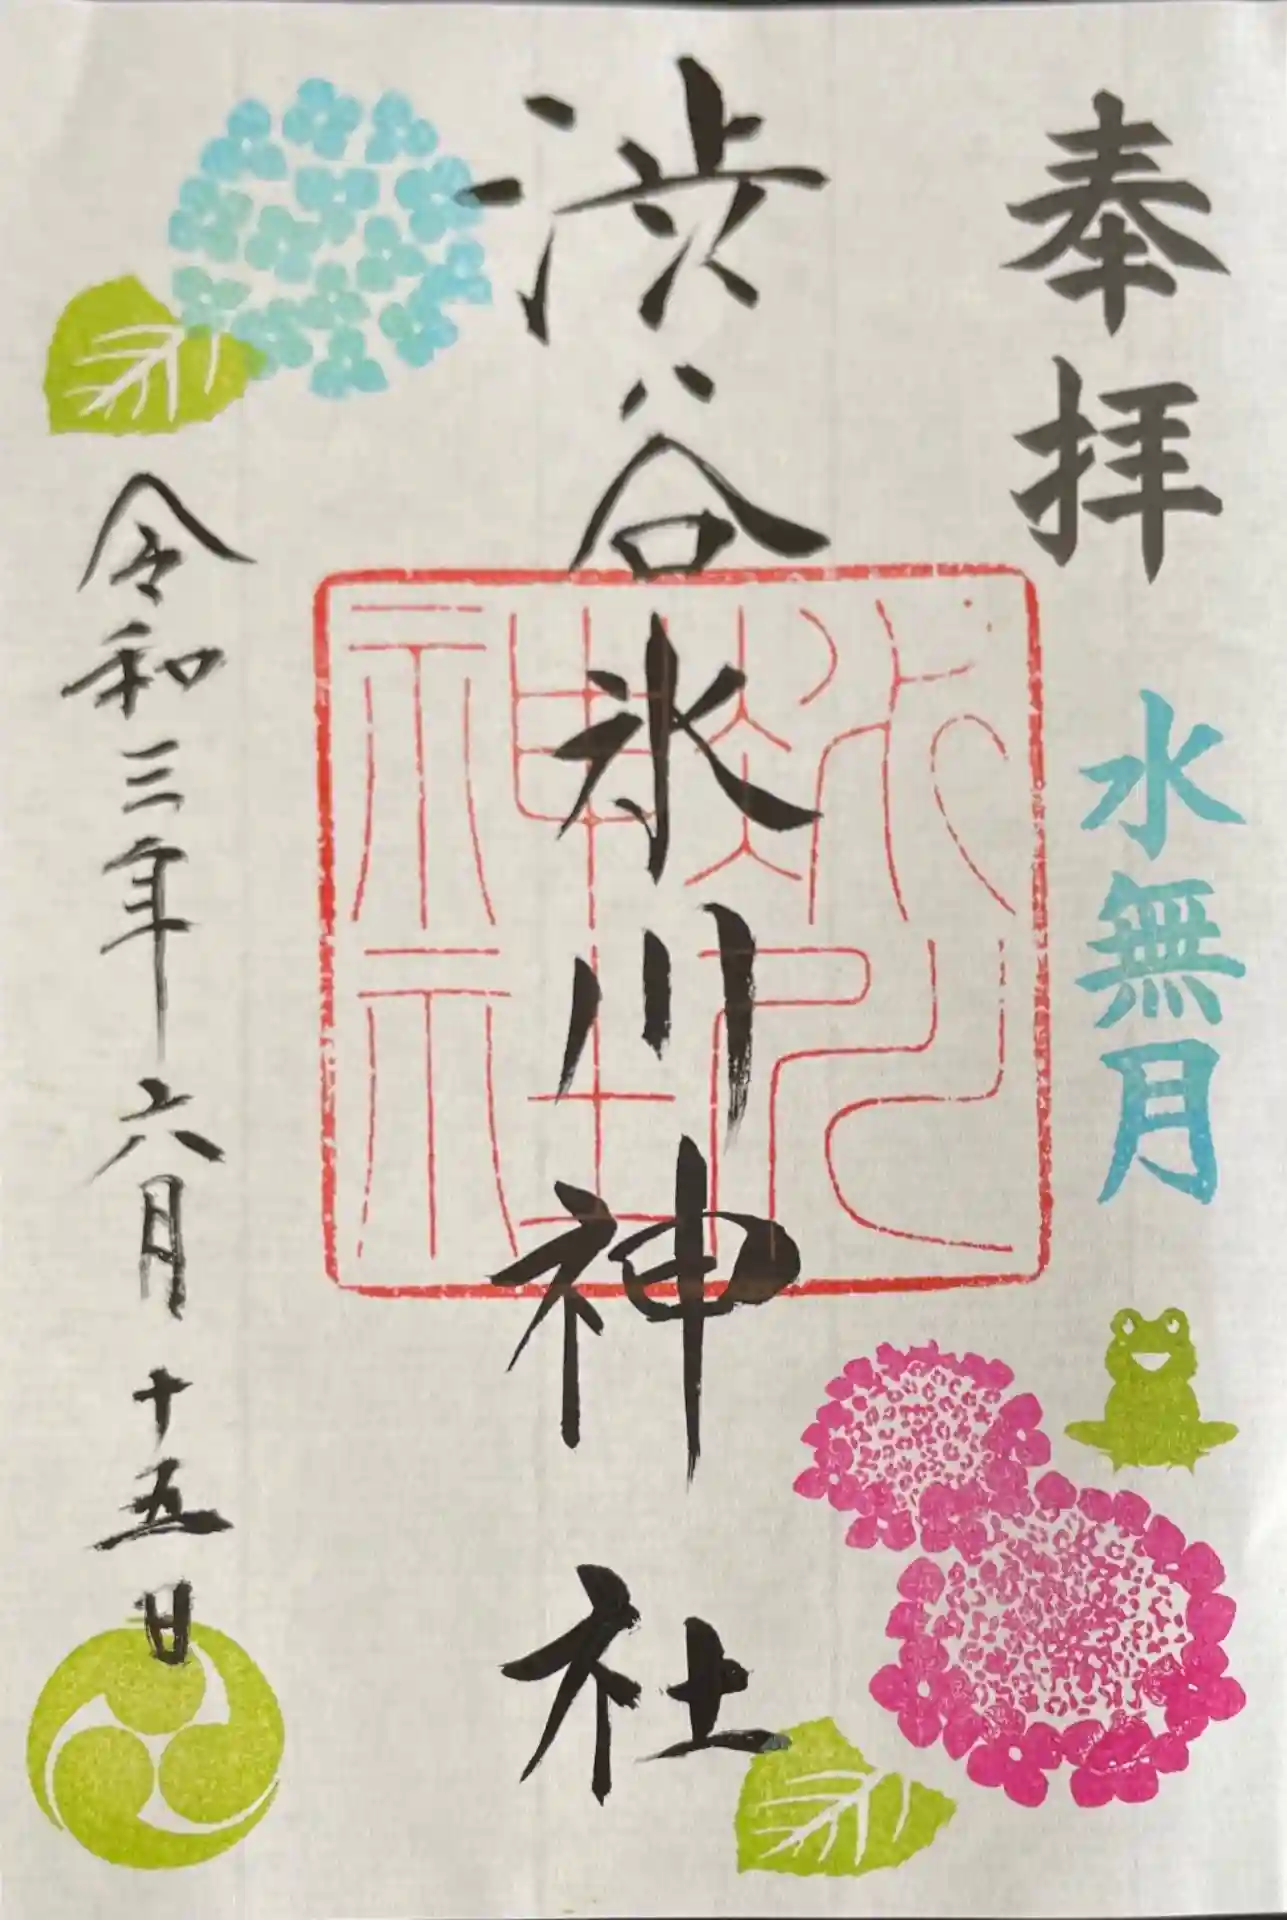 奉拝
水無月
渋谷氷川神社
令和三年六月十五日